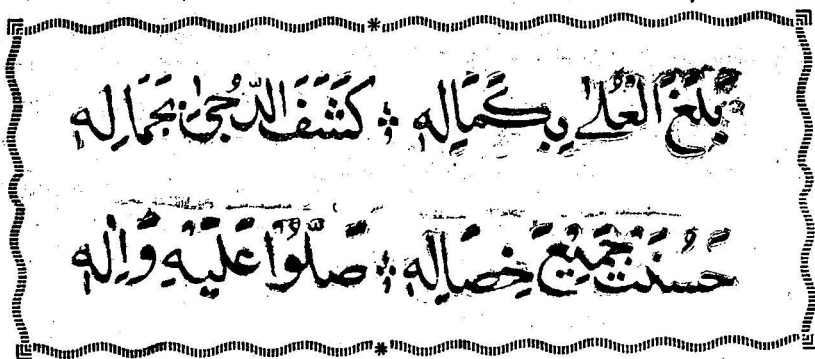 بَلَغَ الْعُلےٰ بِكَمَالِهٖ ؞ كَشَفَ الدُّجىٰ بِجَمَالِهٖ
حَسُنَتْ جَمِيْعُ خِصَالِهٖ ؞ صَلُّوْا عَلَيْهِ وَاٰلِهٖ